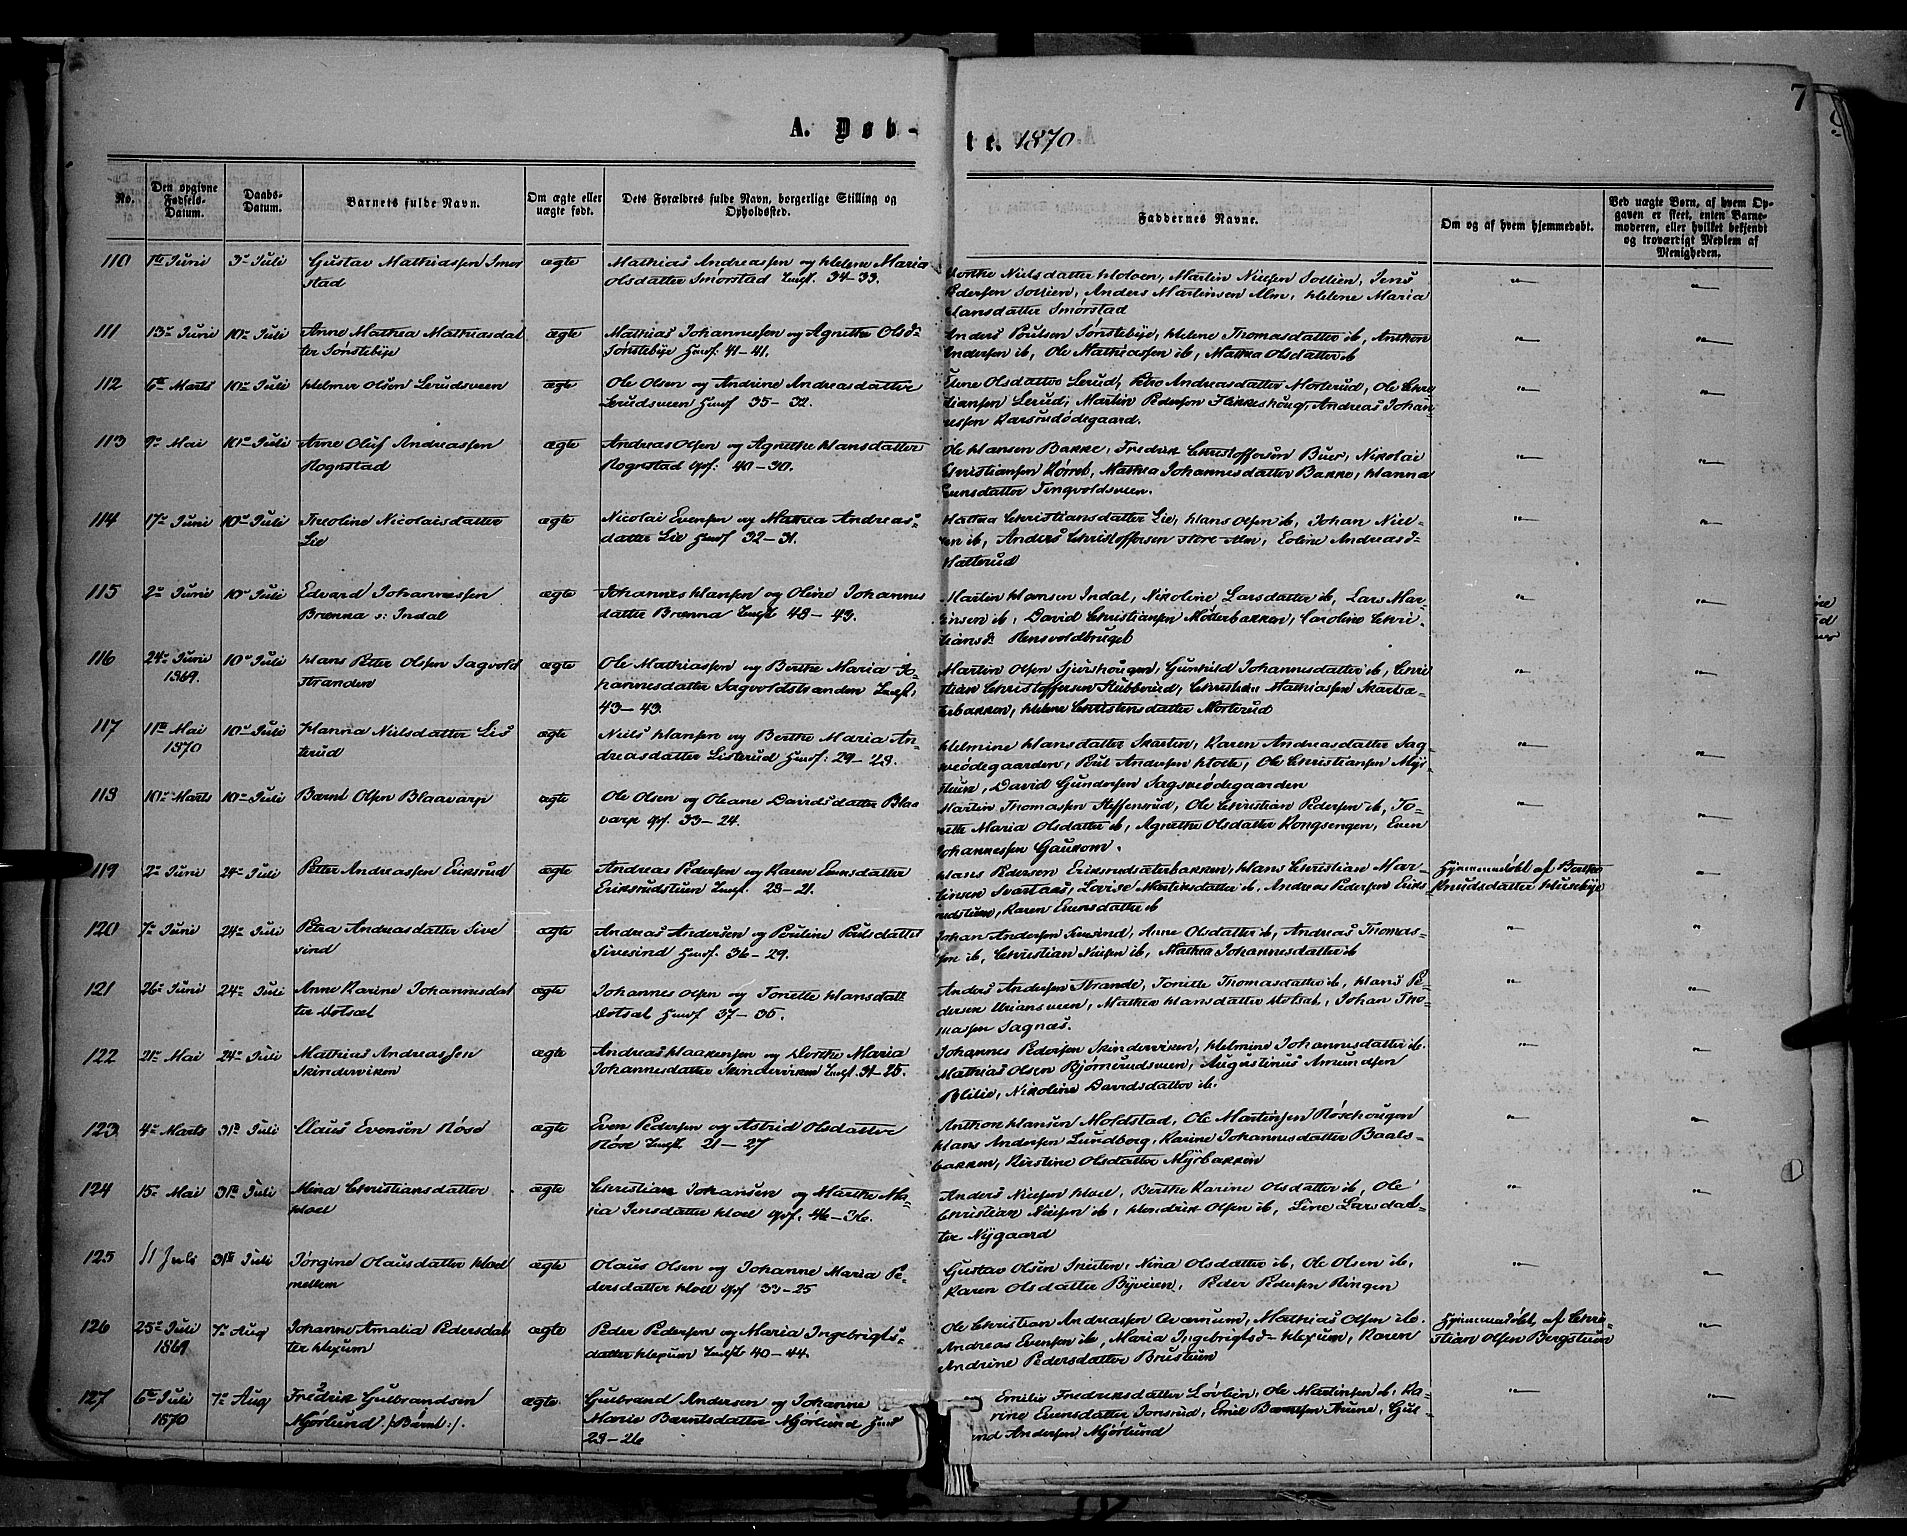 7
A. Døb-
te. 1870
No.
Den opgivne
Fødsels-
Datum.
Daabs-
Datum.
Barnets fulde Navn.
Om ægte eller
uægte født.
Dets Forældres fulde Navn, borgerlige Stilling og
Opholdssted.
Faddernes Navne.
Om og af hvem hjemmedøbt.
Ved uægte Børn, af hvem Op-
gaven er skeet, enten Barne-
moderen, eller hvilket bekjendt
og troværdigt Medlem af
Menigheden.
110 Juni 3die Juli Gustav Mathiassen Smør
stad ægte Mathias Andreassen og Helene Maria
Olsdatter Smørstad 34-33.
Nielsdatter Holoen, Martin Nielsen Sollien, Jens
Pedersen Sollien, Anders Martinsen Alm, Helene Maria
Hansdatter Smørstad
111 13de Juni 10de Juli Anne Mathea Mathiasdat
ter Sønstebye ægte Mathias Johannessen og Agnethe Olsd.
Sønstebye Huusf. 41-41.
Anders Poulsen Sønstebye, Helene Thomasdatter ib, Anthon
Andersen ib, Ole Mathiassen ib, Mathea Olsdatter ib
112 6te Marts 10de Juli Helmer Olsen Lerudsveen ægte Ole Olsen og Andrine Andreasdatter
Lerudsveen Huusf 35-32.
Olsdatter Lerud, Andreasdatter Morterud, Ole Chri
stiansen Lerud, Martin Pedersen Andreas Johan
nessen
113 9de Mai 10de Juli Arne Oluf Andreassen
Rognstad ægte Andreas Olsen og Agnethe Hansdatter
Rognstad Gpf. 40-30.
Ole Hansen Bakke, Fredrik Christoffersen Nikolai
Christiansen Mathea Johannesdatter Bakke, Hanna
Evensdatter Tingvoldsveen.
114 17de Juni 10de Juli Theoline Nicolaisdatter
Lie ægte Nicolai Evensen og Mathea Andreas-
datter Lie Huusf 32-31.
Mathea Christiansdatter Lie, Hans Olsen ib, Johan Niel-
sen ib, Anders Christoffersen store Alm, Eoline Andreasd.
Hatterud
115 2den Juni 10de Juli Edvard Johannessen
Brenna s: Indal ægte Johannes Hansen og Oline Johannes
datter Brenna 48-43.
Martin Hansen Indal, Nikoline Larsdatter ib, Lars Mar-
tinsen ib, David Christiansen Møderbakken, Caroline Chri-
stiansd. Hensvoldbruget
116 24de Juni
1869. 10de Juli Hans Peter Olsen Sagvold
stranden ægte Ole Mathiassen og Berthe Maria Jo-
hannesdatter Sagvoldstranden
43-43.
Martin Olsen Gunhild Johannesdatter ib, Chri
stian Christoffersen Stubberud, Christian Mathiassen
bakken, Helene Christensdatter Morterud
117 11te Mai
1870 10de Juli Hanna Nielsdatter Lis
terud ægte Niels Hansen og Berthe Maria An-
dreasdatter Listerud Huusf: 29-28.
Helmine Hansdatter Skarten, Karen Andreasdatter Sag-
veødegaarden, Poul Andersen Ole Christiansen
David Gundersen Sagveødegaarden
118 10de Marts 10de Juli Bernt Olsen Blaavarp ægte Ole Olsen og Oleane Davidsdatter Blaa
varp Gpf. 33-24.
Martin Thomassen Steffensrud, Ole Christian Pedersen ib, To-
nette Maria Olsdatter ib, Agnethe Olsdatter Kongsengen, Even
Johannessen Gaukom.
119 2den Juni 24de Juli Petter Andreassen Eriksrud ægte Andreas Pedersen og Karen Evensdatter
Eriksrudstuen 28-21.
Hans Pedersen Eriksrudsæterbakken, Hans Christian Mar-
tinsen Svartaas, Lovise Martinsdatter ib, Andreas Pedersen Eriks-
rudstuen, Karen Evensdatter ib
Hjemmedøbt af Berthe
Knudsdatter Husebye
120 7de Juni 24de Juli Petra Andreasdatter Sive
sind ægte Andreas Andersen og Pouline Poulsdatter
Sivesind Huusf. 36-29.
Johan Andersen Sivesind, Anne Olsdatter ib, Andreas Thomas-
sen ib, Christian Nielsen ib, Mathea Johannesdatter ib
121 26de Juni 24de Juli Anne Karine Johannesdat
ter Votsæt ægte Johannes Olsen og Tonette Hansdatt.
Votsæt Huusf 37-35.
Anders Andersen Strande, Tonette Thomasdatter ib, Hans Pe-
dersen Mathea Hansdatter Votsæt, Johan Tho-
massen Sagnæs.
122 21de Mai 24de Juli Mathias Andreassen
Skinderviken ægte Andreas Haakensen og Dorthe Maria
Johannesdatter Skinderviken 31-25.
Johannes Pedersen Skinderviken, Helmine Johannesdatter ib.
Mathias Olsen Bjørnerudsveen, Augustinus Amundsen
Blilie, Nikoline Davidsdatter ib.
123 4de Marts 31te Juli Claus Evensen ægte Even Pedersen og Astrid Olsdatter
21-27
Anthon Hansen Moldstad, Ole Martinsen Røschougen
Hans Andersen Lundborg, Karine Johannesdatter Baals-
bakken, Kirstine Olsdatter Myrbakken
124 15de Mai 31te Juli Mina Christiansdatter
Hoel ægte Christian Johansen og Marthe Ma-
ria Jensdatter Hoel Gpf. 46-36.
Anders Nielsen Hoel, Berthe Karine Olsdatter ib, Ole
Christian Nielsen ib, Hendrik Olsen ib, Line Larsdat-
ter Nygaard
125 11 Juli 31te Juli Jørgine Olausdatter Hoel
mellem ægte Olaus Olsen og Johanne Maria Pe-
dersdatter Hoel Gpf 33-25
Gustav Olsen Skuten, Nina Olsdatter ib, Ole Olsen ib,
Karen Olsdatter Byveien, Peder Pedersen Ringen
126 25de Juli
1869 7de Aug Johanne Amalia Pedersdat
ter Hexum ægte Peder Pedersen og Maria Ingebrigts-
datter Hexum 40-44.
Ole Christian Andreassen Qværnum, Mathias Olsen ib.
Andreas Evensen ib, Maria Ingebrigtsd. Hexum, Karen
Andrine Pedersdatter Brustuen
Hjemmedøbt af Chri-
stian Olsen Bergstuen
127 6te Juli
1870 7de Aug Fredrik Gulbrandsen
Mjørlund. /:Bernt:/. ægte Gulbrand Andersen og Johanne
Marie Berntsdatter Mjørlund Huusf
23-26
Emilie Fredriksdatter Løvlien, Ole Martinsen ib, Ka-
rine Evensdatter Jonsrud, Emil Berntsen Gul-
Andersen Mjørlund